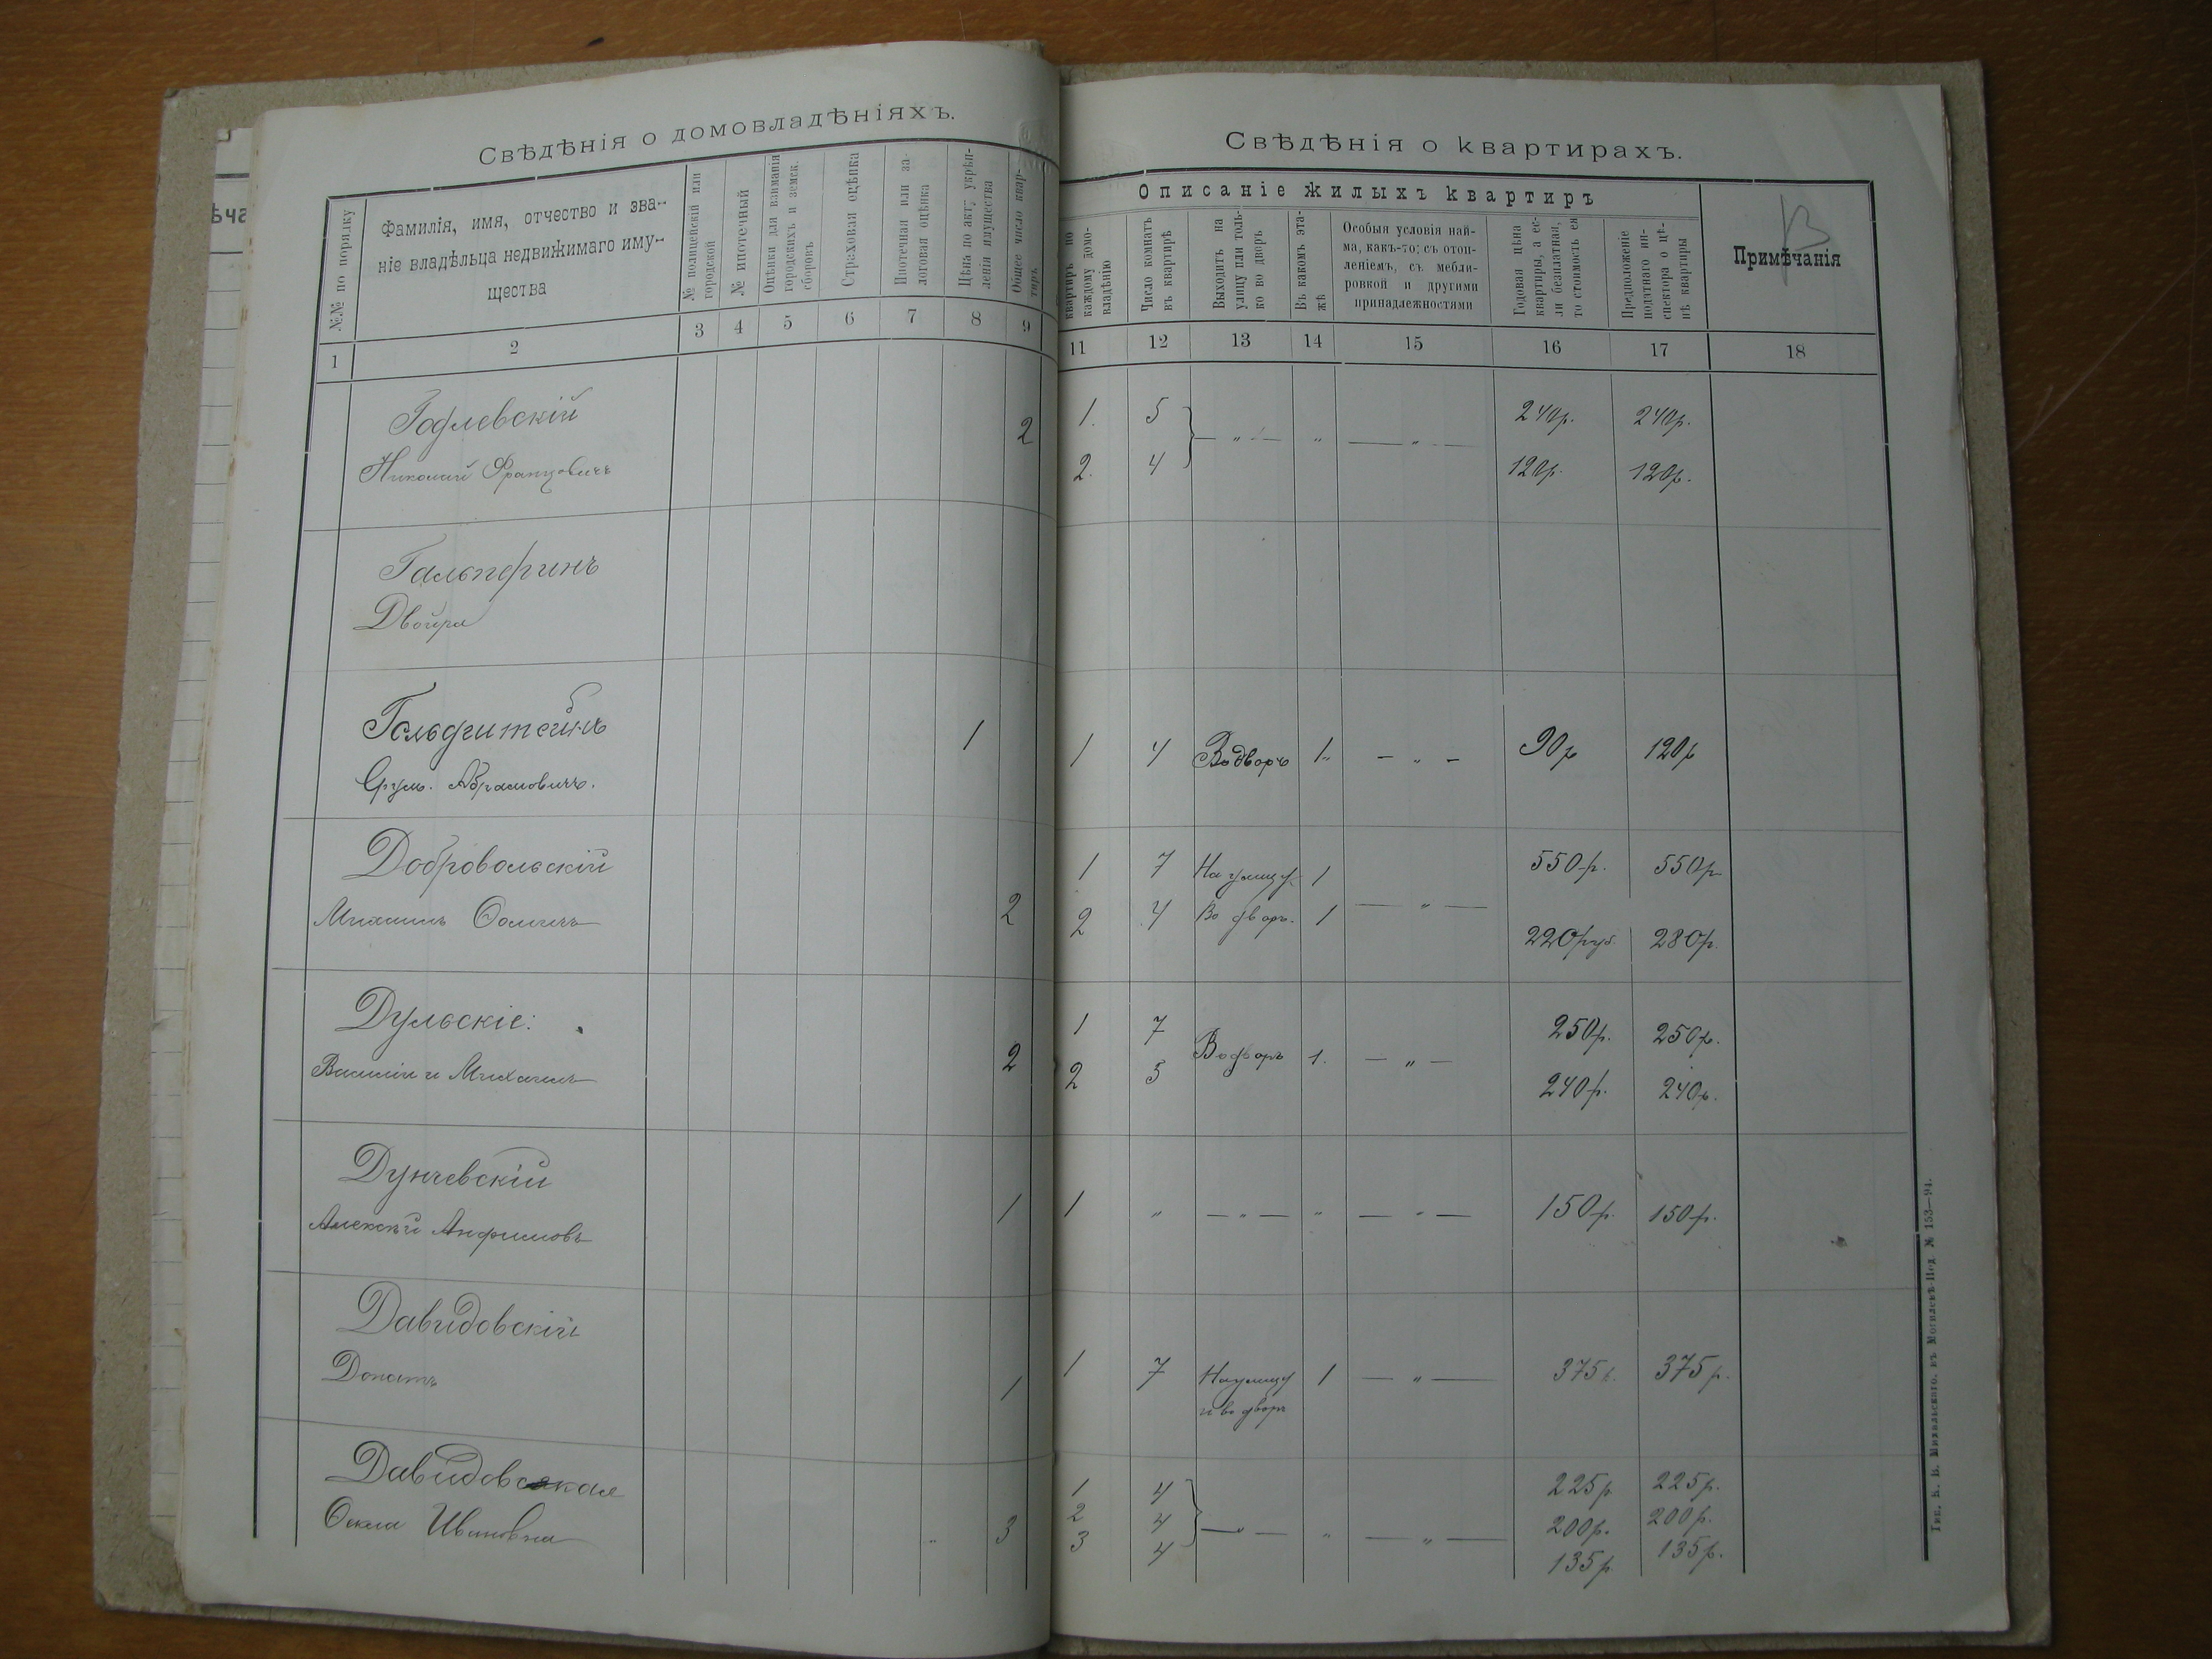 ѣча
Свѣдѣнія о домовладѣніяхъ.
№№ по порядку
Фамилія, имя, отчество и зва-
ніе владѣльца недвижимаго иму-
щества
№ полицейскій или
городской
№ ипотечный
Оцѣнки для взиманія
городскихъ и земск.
сборовъ
Страховая оцѣнка
Ипотечная или за-
логовая оцѣнка
Цѣна по акту укрѣп-
ленія имущества
Общее число квар-
тиръ
1 2 3 4 5 6 7 8 9
Годлевскій
Николай Францовичъ
2
Гальперинъ
Двойра
Гольдштейнъ
Срулъ. Абрамовичъ.
1
Добровольскій
Михаилъ Ѳомичъ
2
Дульскіе:
Василій и Михаилъ
2
Дунчевскій
Алексѣй Анфимовъ
1
Давидовскій
Донатъ
1
Давидовская
Ѳекла Ивановна
3
Свѣдѣнія о квартирахъ.
Описаніе жилыхъ квартиръ
квартиръ по
каждому домо-
владѣнію
Число комнатъ
въ квартирѣ
Выходитъ на
улицу или толь-
ко во дворъ
Въ какомъ эта-
жѣ
Особыя условія най-
ма, какъ-то; съ отоп-
леніемъ, съ мебли-
ровкой и другими
принадлежностями
Годовая цѣна
квартиры, а ес-
ли безплатная,
то стоимость ея
Предположеніе
податнаго ин-
спектора о цѣ-
нѣ квартиры
Примѣчанія
11 12 13 14 15 16 17 18
1. 5 — „ — „ — „ — 240р. 240р.
2. 4 120р. 120р.
1 4 Во дворъ 1 — „ — 90р 120р
1 7 На улицу 1 — „ — 550р. 550р
2 4 Во дворъ. 1 220руб. 280р.
1 7 Во дворъ 1. — „ — 250р. 250р.
2 5 240р. 240р.
1 „ — „ — „ — „ — 150р. 150р.
1 7 На улицу 1 — „ — 375р. 375р.
и во дворъ
1 4 — „ — „ — „ — 225р 225р.
2 4 200р. 200р.
3 4 135р 135р.
Тип. Б. Михальскаго. въ Могилевѣ-Под № 153—94.